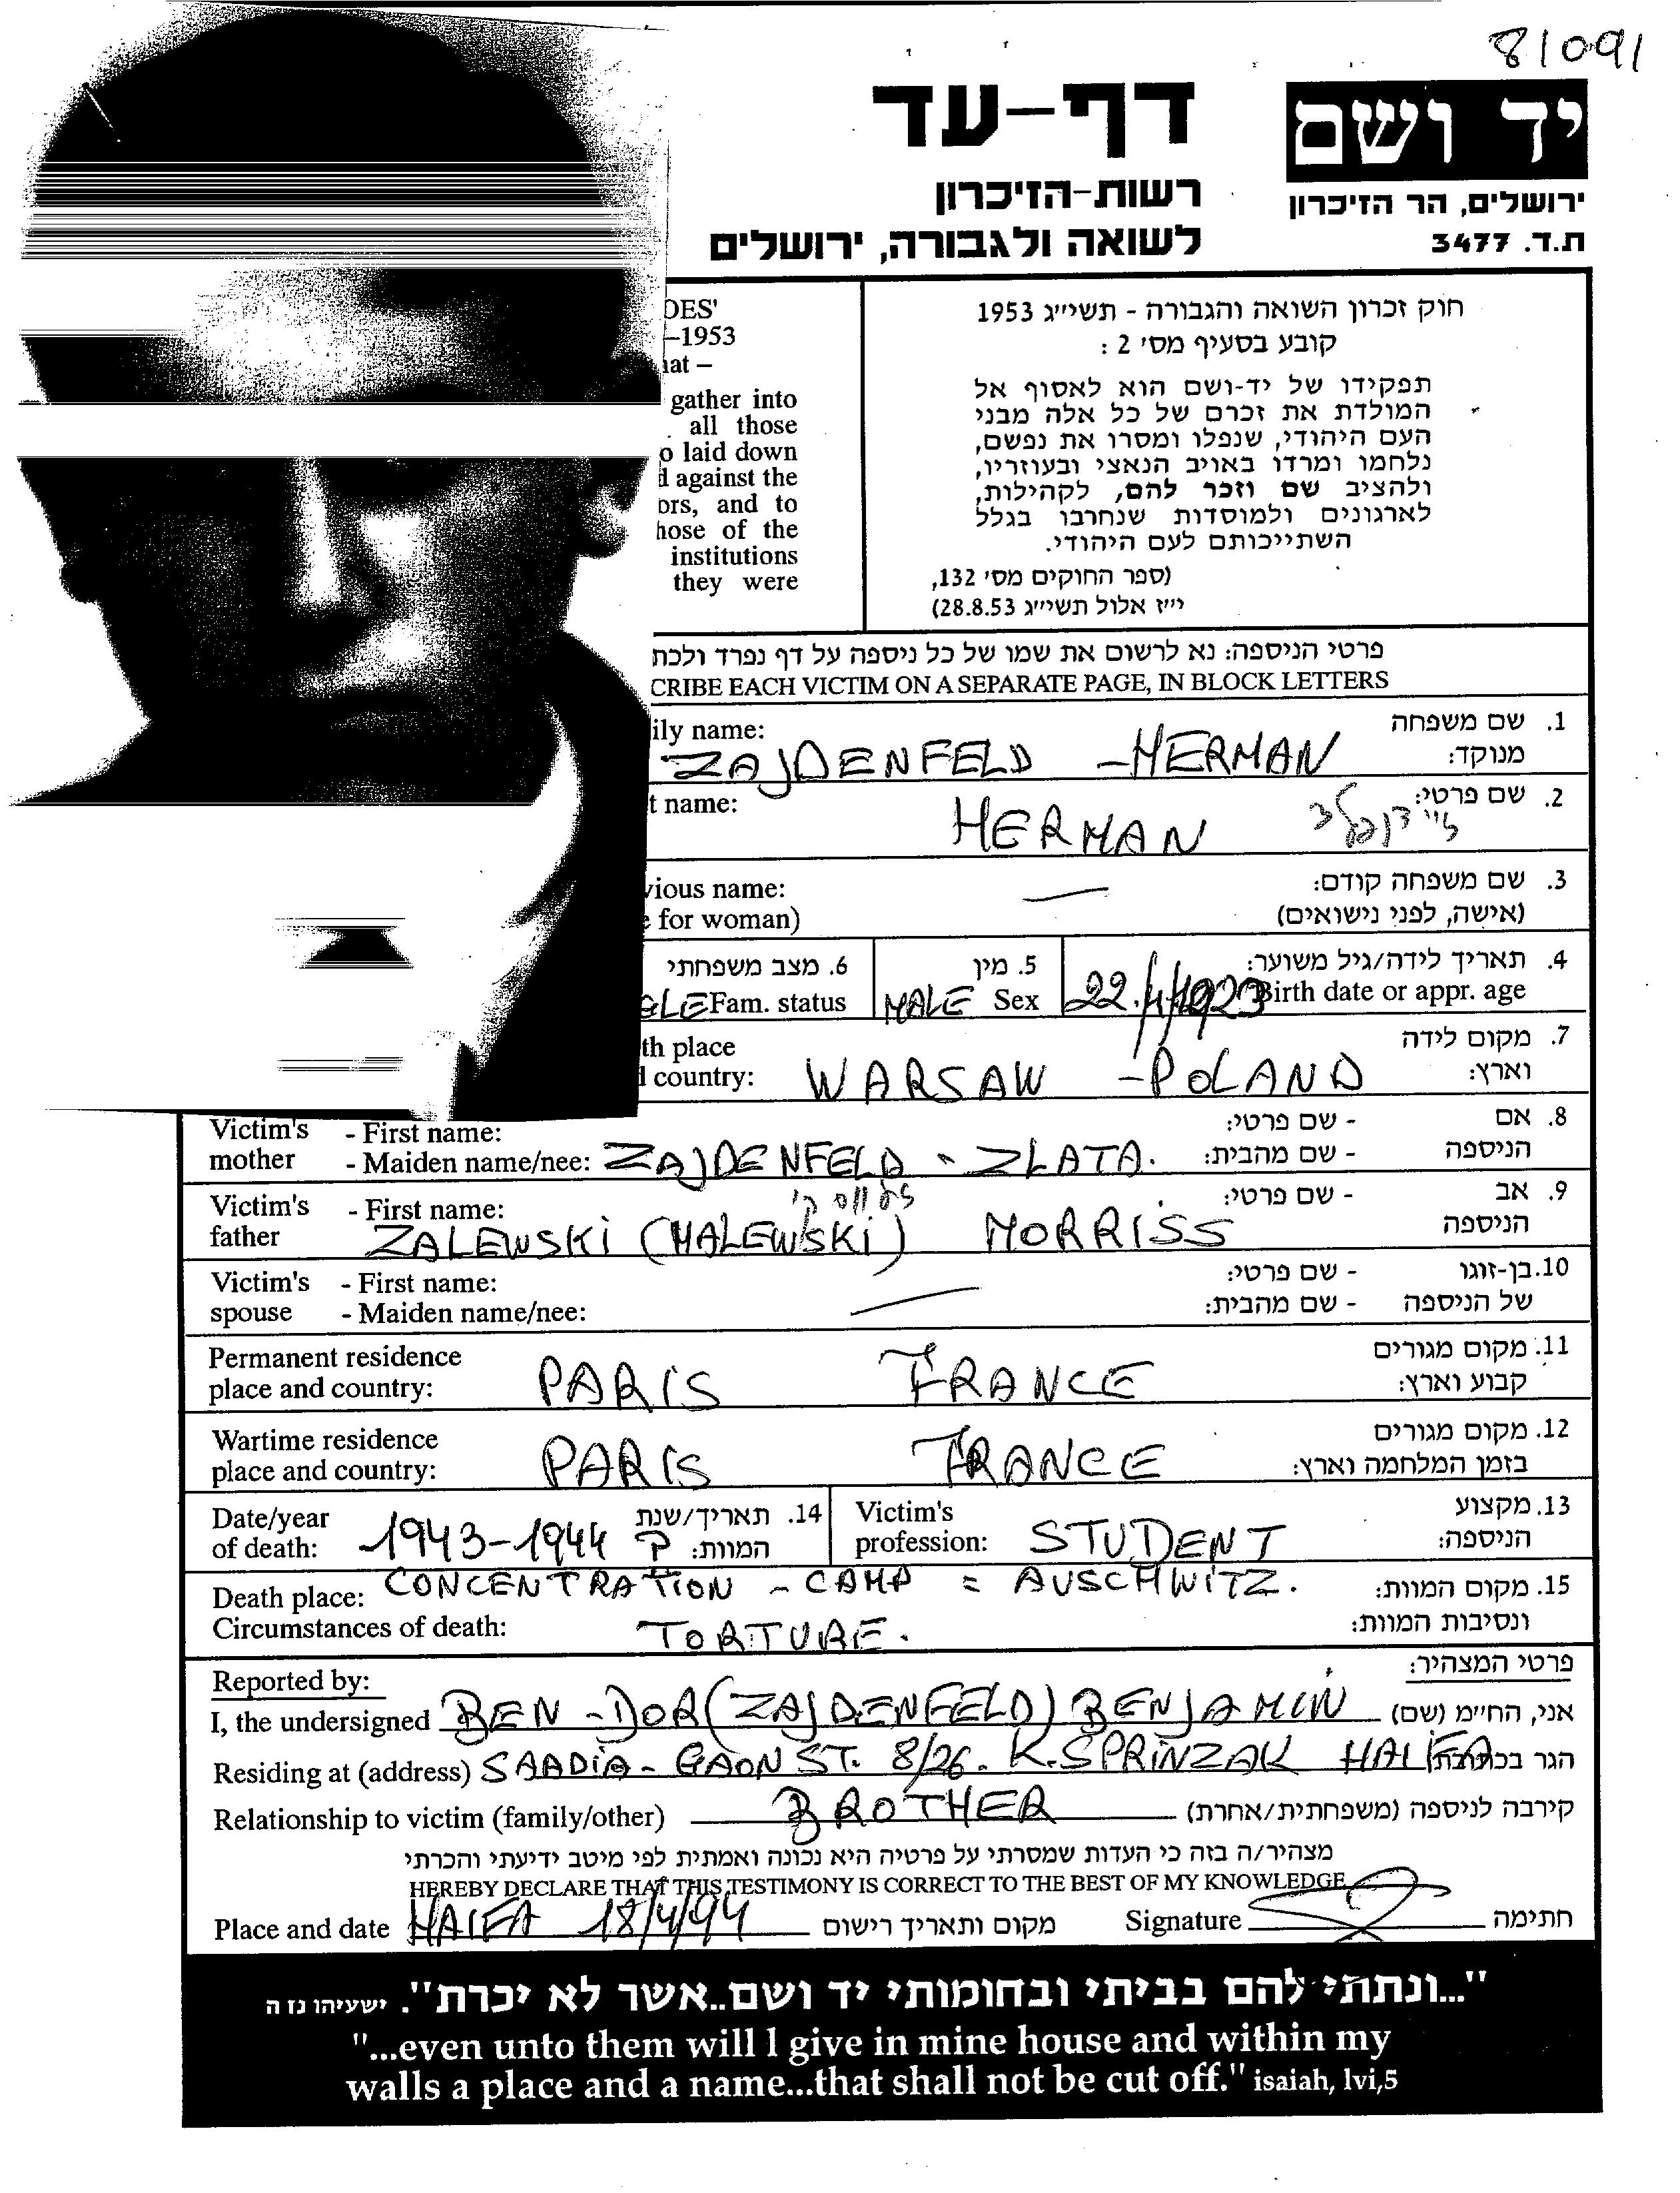 81091
יד ושם
ירושלים, הר הזיכרון
ת.ד. 3477
דף-עד
רשות-הזיכרון
לשואה ולגבורה, ירושלים
חוק זכרון השואה והגבורה - תשי״ג 1953
קובע בסעיף מס׳ 2 :
תפקידו של יד-ושם הוא לאסוף אל
המולדת את זכרם של כל אלה מבני
העם היהודי, שנפלו ומסרו את נפשם,
נלחמו ומרדו באויב הנאצי ובעוזריו,
ולהציב שם וזכר להם, לקהילות,
לארגונים ולמוסדות שנחרבו בגלל
השתייכותם לעם היהודי.
(ספר החוקים מס׳ 132,
י״ז אלול תשי״ג 28.8.53)
OES'
–1953
hat –
gather into
all those
o laid down
d against the
ors, and to
hose of the
institutions
they were
פרטי הניספה: נא לרשום את שמו של כל ניספה על דף נפרד ולכת
CRIBE EACH VICTIM ON A SEPARATE PAGE, IN BLOCK LETTERS
ily name: ZAJDENFELD – HERMAN 1. שם משפחה
מנוקד:
t name: HERMAN זיידנפלד 2. שם פרטי:
vious name: — 3. שם משפחה קודם:
e for woman) (אישה, לפני נישואים)
6. מצב משפחתי 5. מין 4. תאריך לידה/גיל משוער:
GLE Fam. status MALE Sex 22/4/1923 Birth date or appr. age
th place 7. מקום לידה
d country: WARSAW – POLAND וארץ:
Victim's - First name: - שם פרטי: 8. אם
mother - Maiden name/nee: ZAJDENFELD - ZLATA. - שם מהבית: הניספה
Victim's - First name: - שם פרטי: 9. אב
father ZALEWSKI (MALEWSKI) MORRISS הניספה
Victim's - First name: - שם פרטי: 10. בן-זוגו
spouse - Maiden name/nee: — - שם מהבית: של הניספה
Permanent residence 11. מקום מגורים
place and country: PARIS FRANCE קבוע וארץ:
Wartime residence 12. מקום מגורים
place and country: PARIS FRANCE בזמן המלחמה וארץ:
Date/year 14. תאריך/שנת Victim's 13. מקצוע
of death: 1943-1944 ? המוות: profession: STUDENT הניספה:
Death place: CONCENTRATION - CAMP = AUSCHWITZ. 15. מקום המוות:
Circumstances of death: TORTURE. ונסיבות המוות:
Reported by: פרטי המצהיר:
I, the undersigned BEN-DOR (ZAJDENFELD) BENJAMIN אני, החיימ (שם)
Residing at (address) SAADIA-GAON ST. 8/26. K. SPRINZAK HAIFA הגר בכתובת
Relationship to victim (family/other) BROTHER קירבה לניספה (משפחתית/אחרת)
מצהיר/ה בזה כי העדות שמסרתי על פרטיה היא נכונה ואמתית לפי מיטב ידיעתי והכרתי
HEREBY DECLARE THAT THIS TESTIMONY IS CORRECT TO THE BEST OF MY KNOWLEDGE
Place and date HAIFA 18/4/94 מקום ותאריך רישום Signature חתימה
"...ונתתי להם בביתי ובחומותי יד ושם..אשר לא יכרת". ישעיהו נז ה
"...even unto them will I give in mine house and within my
walls a place and a name...that shall not be cut off." isaiah, lvi,5